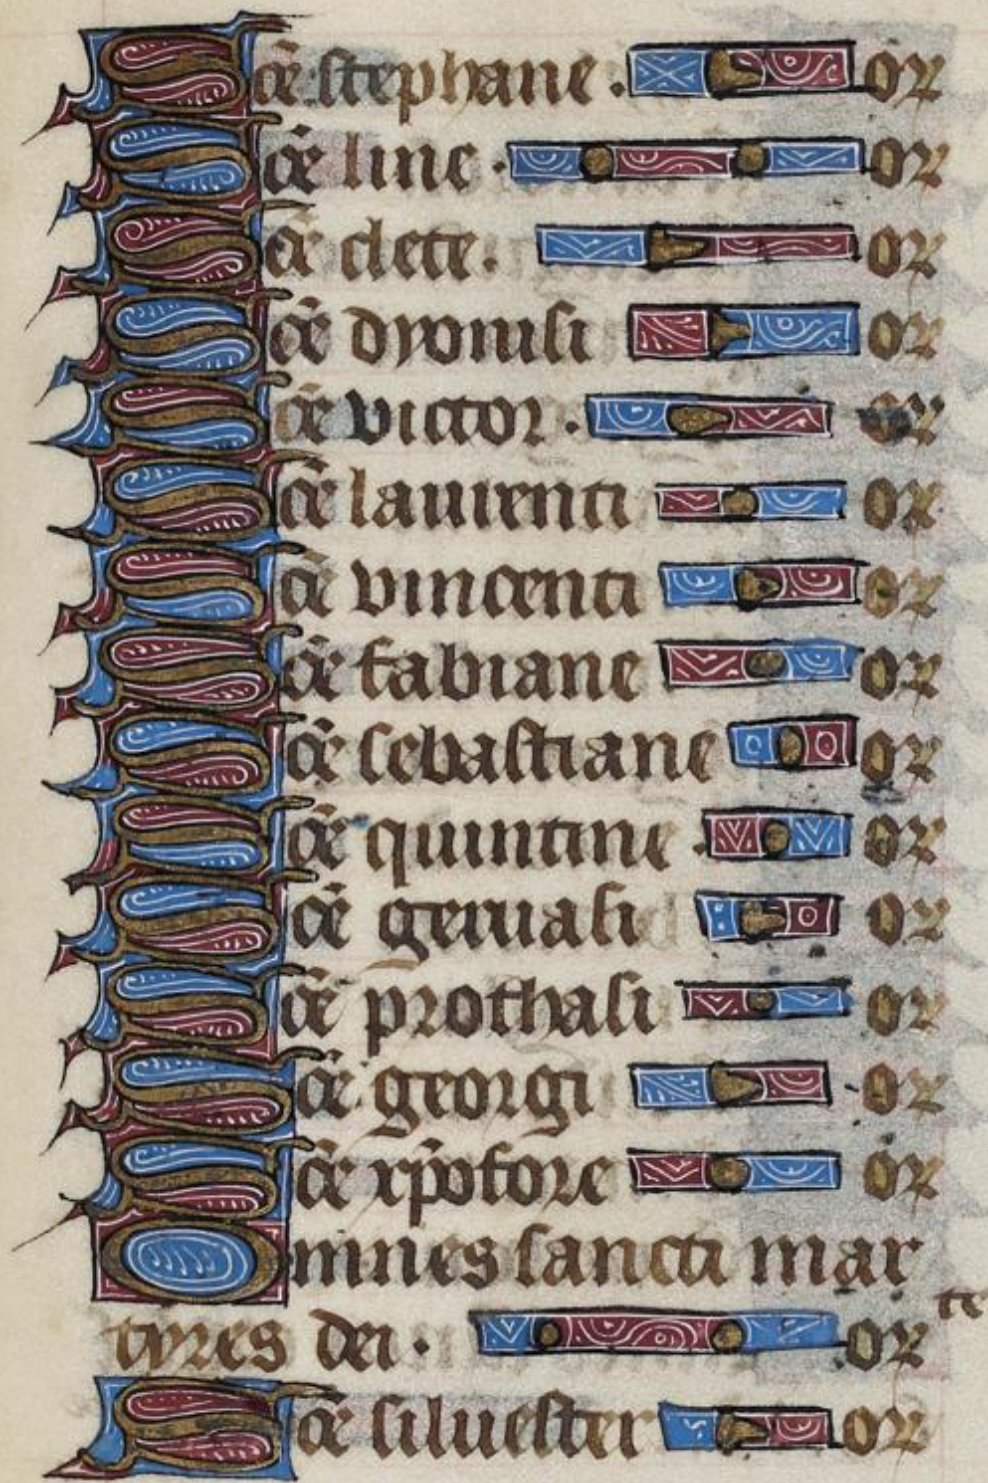 Sce̅ stephane. or
Sce̅ line. or
Sce̅ clete. or
Sce̅ dyonisi or
Sce̅ victor. or
Sce̅ laurenti or
Sce̅ vincenti or
Sce̅ fabiane or
Sce̅ sebastiane or
Sce̅ quintine. or
Sce̅ geruasi or
Sce̅ prothasi or
Sce̅ georgi or
Sce̅ xp̅ofore or
Omnes sancti mar
tyres dei. or te
Sce̅ siluester or